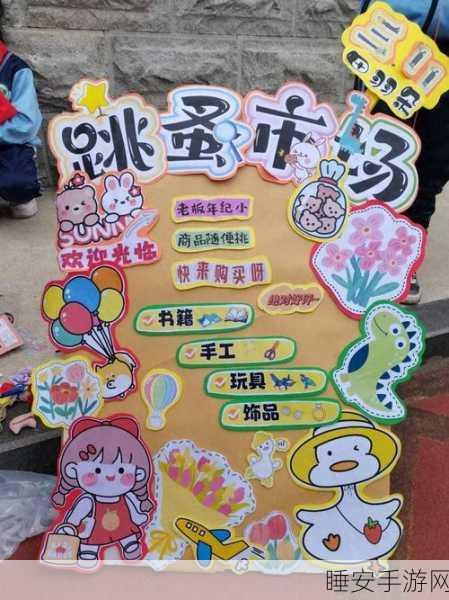 三(1)
跳蚤市场
SUNNY
欢迎光临
老板年纪小
商品随便挑
快来购买呀
绝对好评~
书籍
手工
玩具
饰品
Hi
睡安手游网